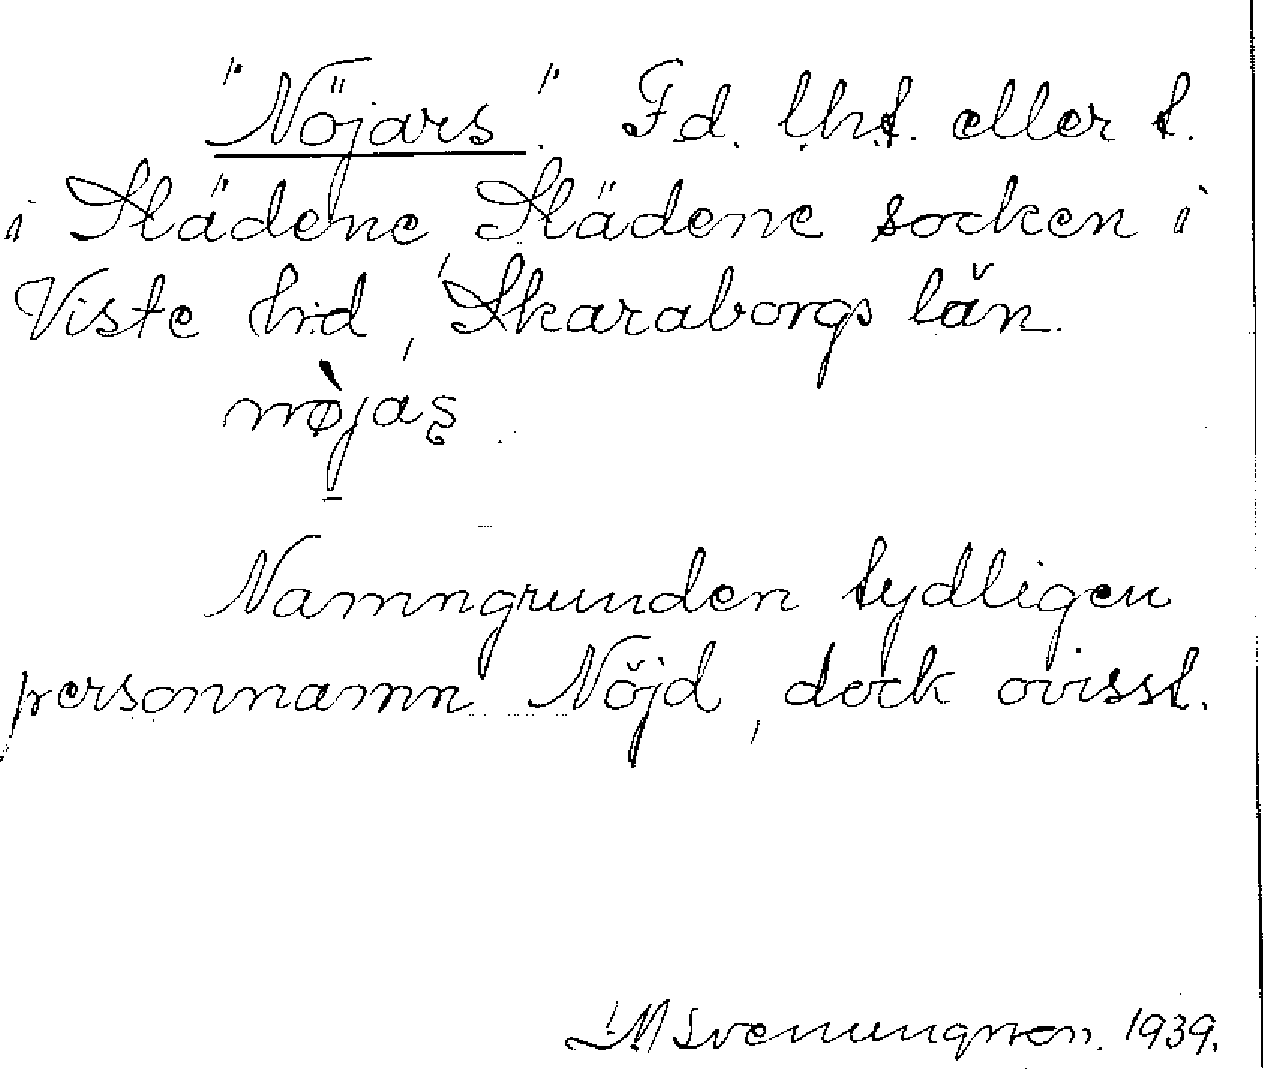 "Nöjars". Fd. lht. eller t.
i Slädene, Slädene socken i
Viste hrd, Skaraborgs län.
nø̀jaʂ.
Namngrunden tydligen
personnamn Nöjd, dock ovisst.
Svenungsson. 1939.